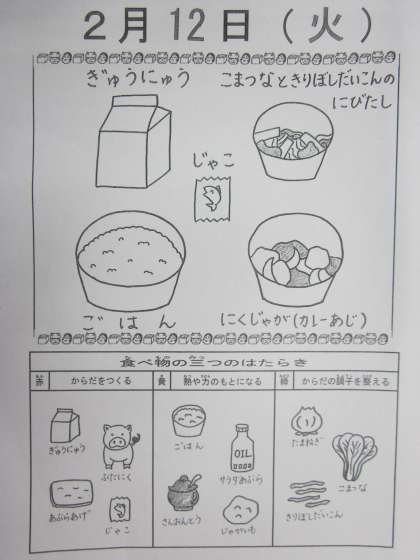 ２月12日（火）
ぎゅうにゅう
こまつなときりぼしだいこんの
にびたし
じゃこ
ごはん
にくじゃが(カレーあじ)
食べ物の三つのはたらき
赤 からだをつくる
黄 熱や力のもとになる
緑 からだの調子を整える
ぎゅうにゅう
ぶたにく
あぶらあげ
じゃこ
ごはん
OIL
サラダあぶら
さんおんとう
じゃがいも
たまねぎ
こまつな
きりぼしだいこん